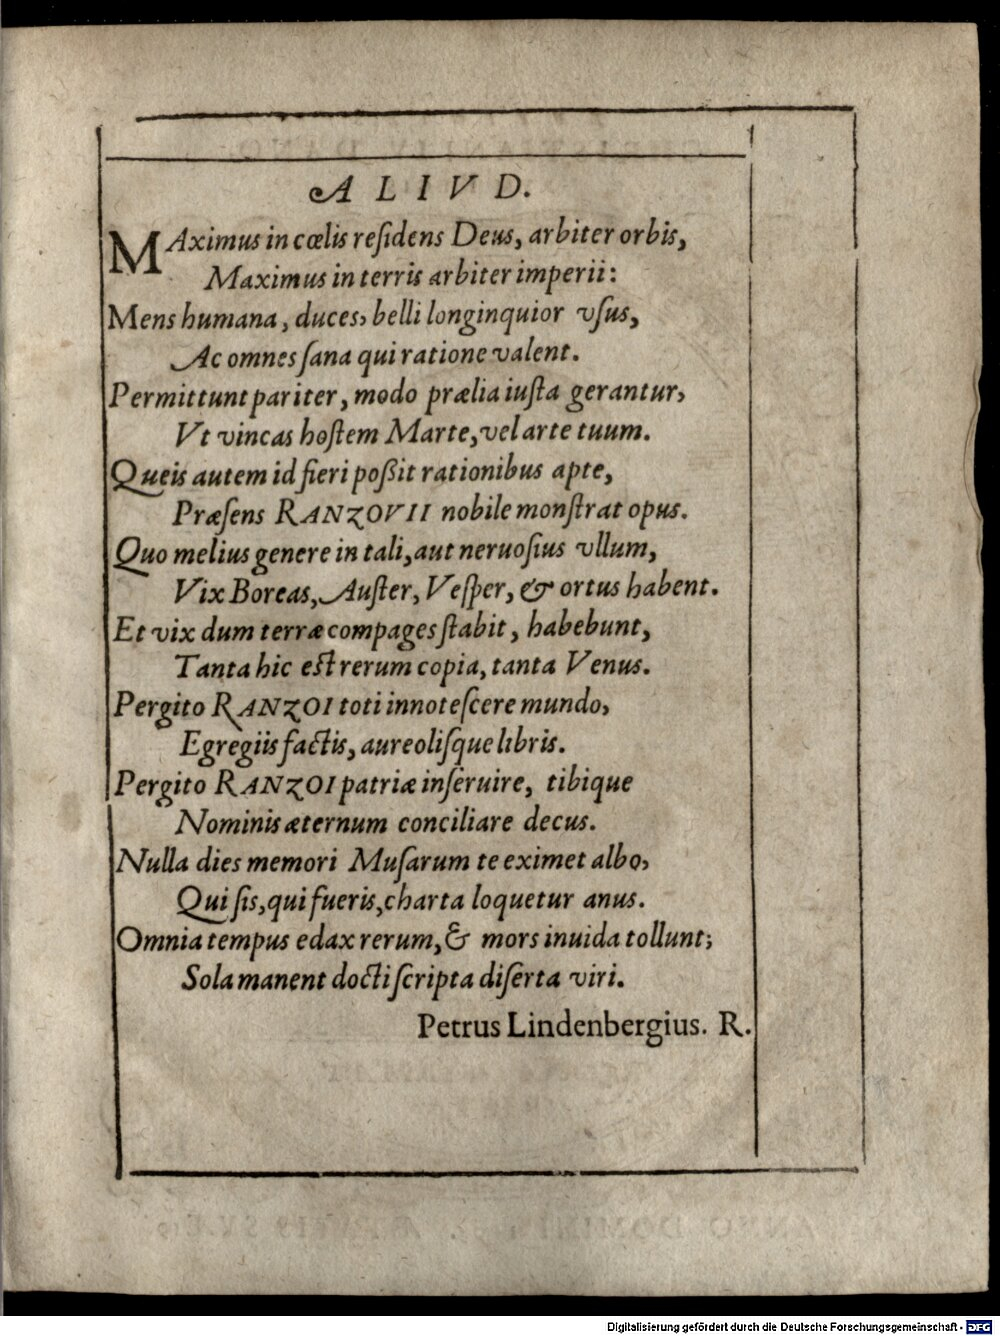 ALIVD.
MAximus in cœlis residens Deus, arbiter orbis,
Maximus in terris arbiter imperii:
Mens humana, duces, belli longinquior vsus,
Ac omnes sana qui ratione valent.
Permittunt pariter, modo prælia iusta gerantur,
Vt vincas hostem Marte, vel arte tuum.
Queis autem id fieri poßit rationibus apte,
Præsens RANZOVII nobile monstrat opus.
Quo melius genere in tali, aut neruosius vllum,
Vix Boreas, Auster, Vesper, & ortus habent.
Et vix dum terræ compages stabit, habebunt,
Tanta hic est rerum copia, tanta Venus.
Pergito RANZOI toti innotescere mundo,
Egregiis factis, aureolisque libris.
Pergito RANZOI patriæ inseruire, tibique
Nominis æternum conciliare decus.
Nulla dies memori Musarum te eximet albo,
Qui sis, qui fueris, charta loquetur anus.
Omnia tempus edax rerum, & mors inuida tollunt;
Sola manent docti scripta diserta viri.
Petrus Lindenbergius. R.
Digitalisierung gefördert durch die Deutsche Forschungsgemeinschaft - DFG